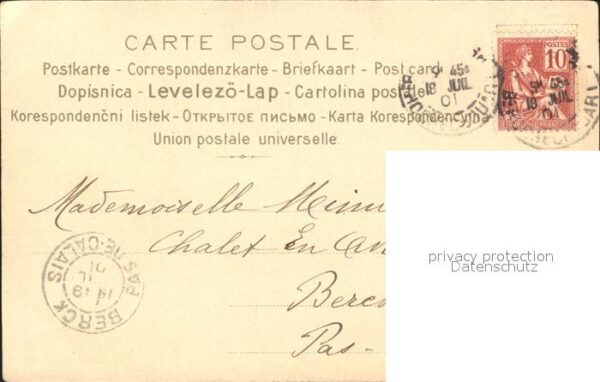 CARTE POSTALE.
Postkarte - Correspondenzkarte - Briefkaart - Post card
Dopisnica - Levelező-Lap - Cartolina postale
Korespondenční listek - Открытое письмо - Karta Korespondencyjna
Union postale universelle.
POSTES
10
9 45
18 JUIL
01
9 45
18 JUIL
01
Mademoiselle
Chalet En
Berck
Pas-
PAS-DE-CALAIS
BERCK
19
01
privacy protection
Datenschutz